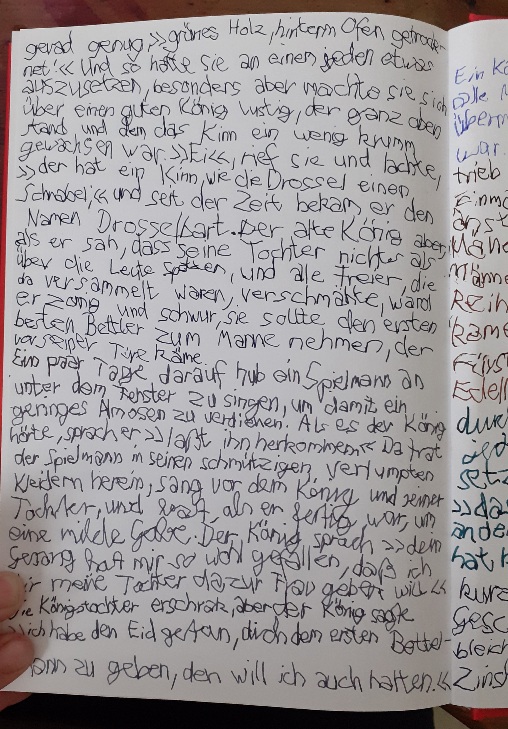 gerad genug, »grünes Holz, hinterm Ofen getrock-
net!« Und so hatte sie an einen jeden etwas
auszusetzen, besonders aber machte sie sich
über einen guten König lustig, der ganz oben
stand und dem das Kinn ein wenig krumm
gewachsen war. »Ei«, rief sie und lachte,
»der hat ein Kinn, wie die Drossel einen
Schnabel;« und seit der Zeit bekam er den
Namen Drosselbart. Der alte König aber,
als er sah, dass seine Tochter nichts als
über die Leute spotten, und alle freier, die
da versammelt waren, verschmähte, ward
er zornig und schwur, sie sollte den ersten
besten Bettler zum Manne nehmen, der
vor seiner Türe käme.
Ein paar Tage darauf hub ein Spielmann an
unter dem Fenster zu singen, um damit ein
geringes Almosen zu verdienen. Als es der König
hörte, sprach er »laßt ihn herkommen« Da trat
der Spielmann in seinen schmutzigen verlumpten
Kleidern herein, sang vor dem König und seiner
Tochter, und bat, als er fertig war, um
eine milde Gabe. Der König sprach »dein
Gesang hat mir so wohl gefallen, daß ich
dir meine Tochter da zur Frau geben will«
Die Königstochter erschrak, aber der König sagte
»ich habe den Eid getan, dich dem ersten Bettel-
mann zu geben, den will ich auch halten.«
Ein Kö
alle
überm
war.
trieb
Einma
anst
Männe
Reih
kame
Fürst
Edell
durc
setz
»das
ande
hat
kurz
Gesc
bleich
Zins